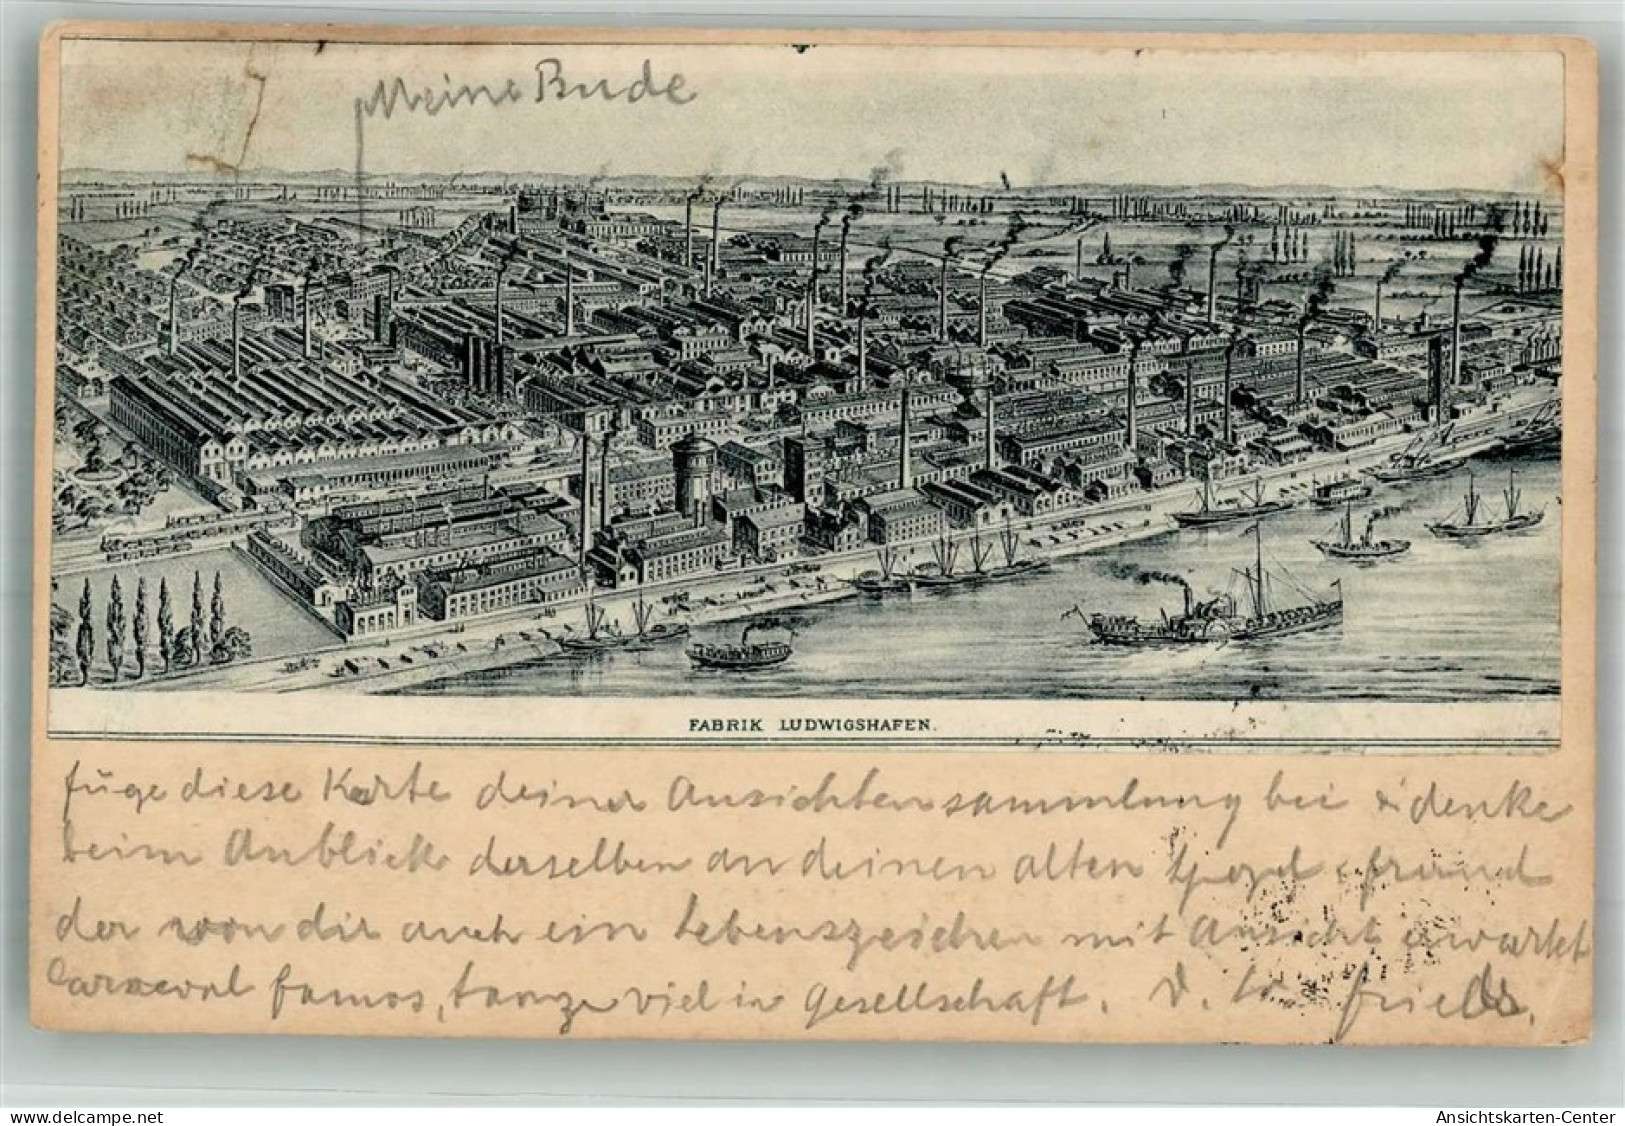 Meine Bude
FABRIK LUDWIGSHAFEN.
füge diese Karte deiner Ansichtensammlung bei & denke
beim Anblick derselben an deinen alten freund
der von dir auch ein Lebenszeichen mit Ansicht erwartet
Carneval famos, tanze viel in Gesellschaft. D.
www.delcampe.net
Ansichtskarten-Center